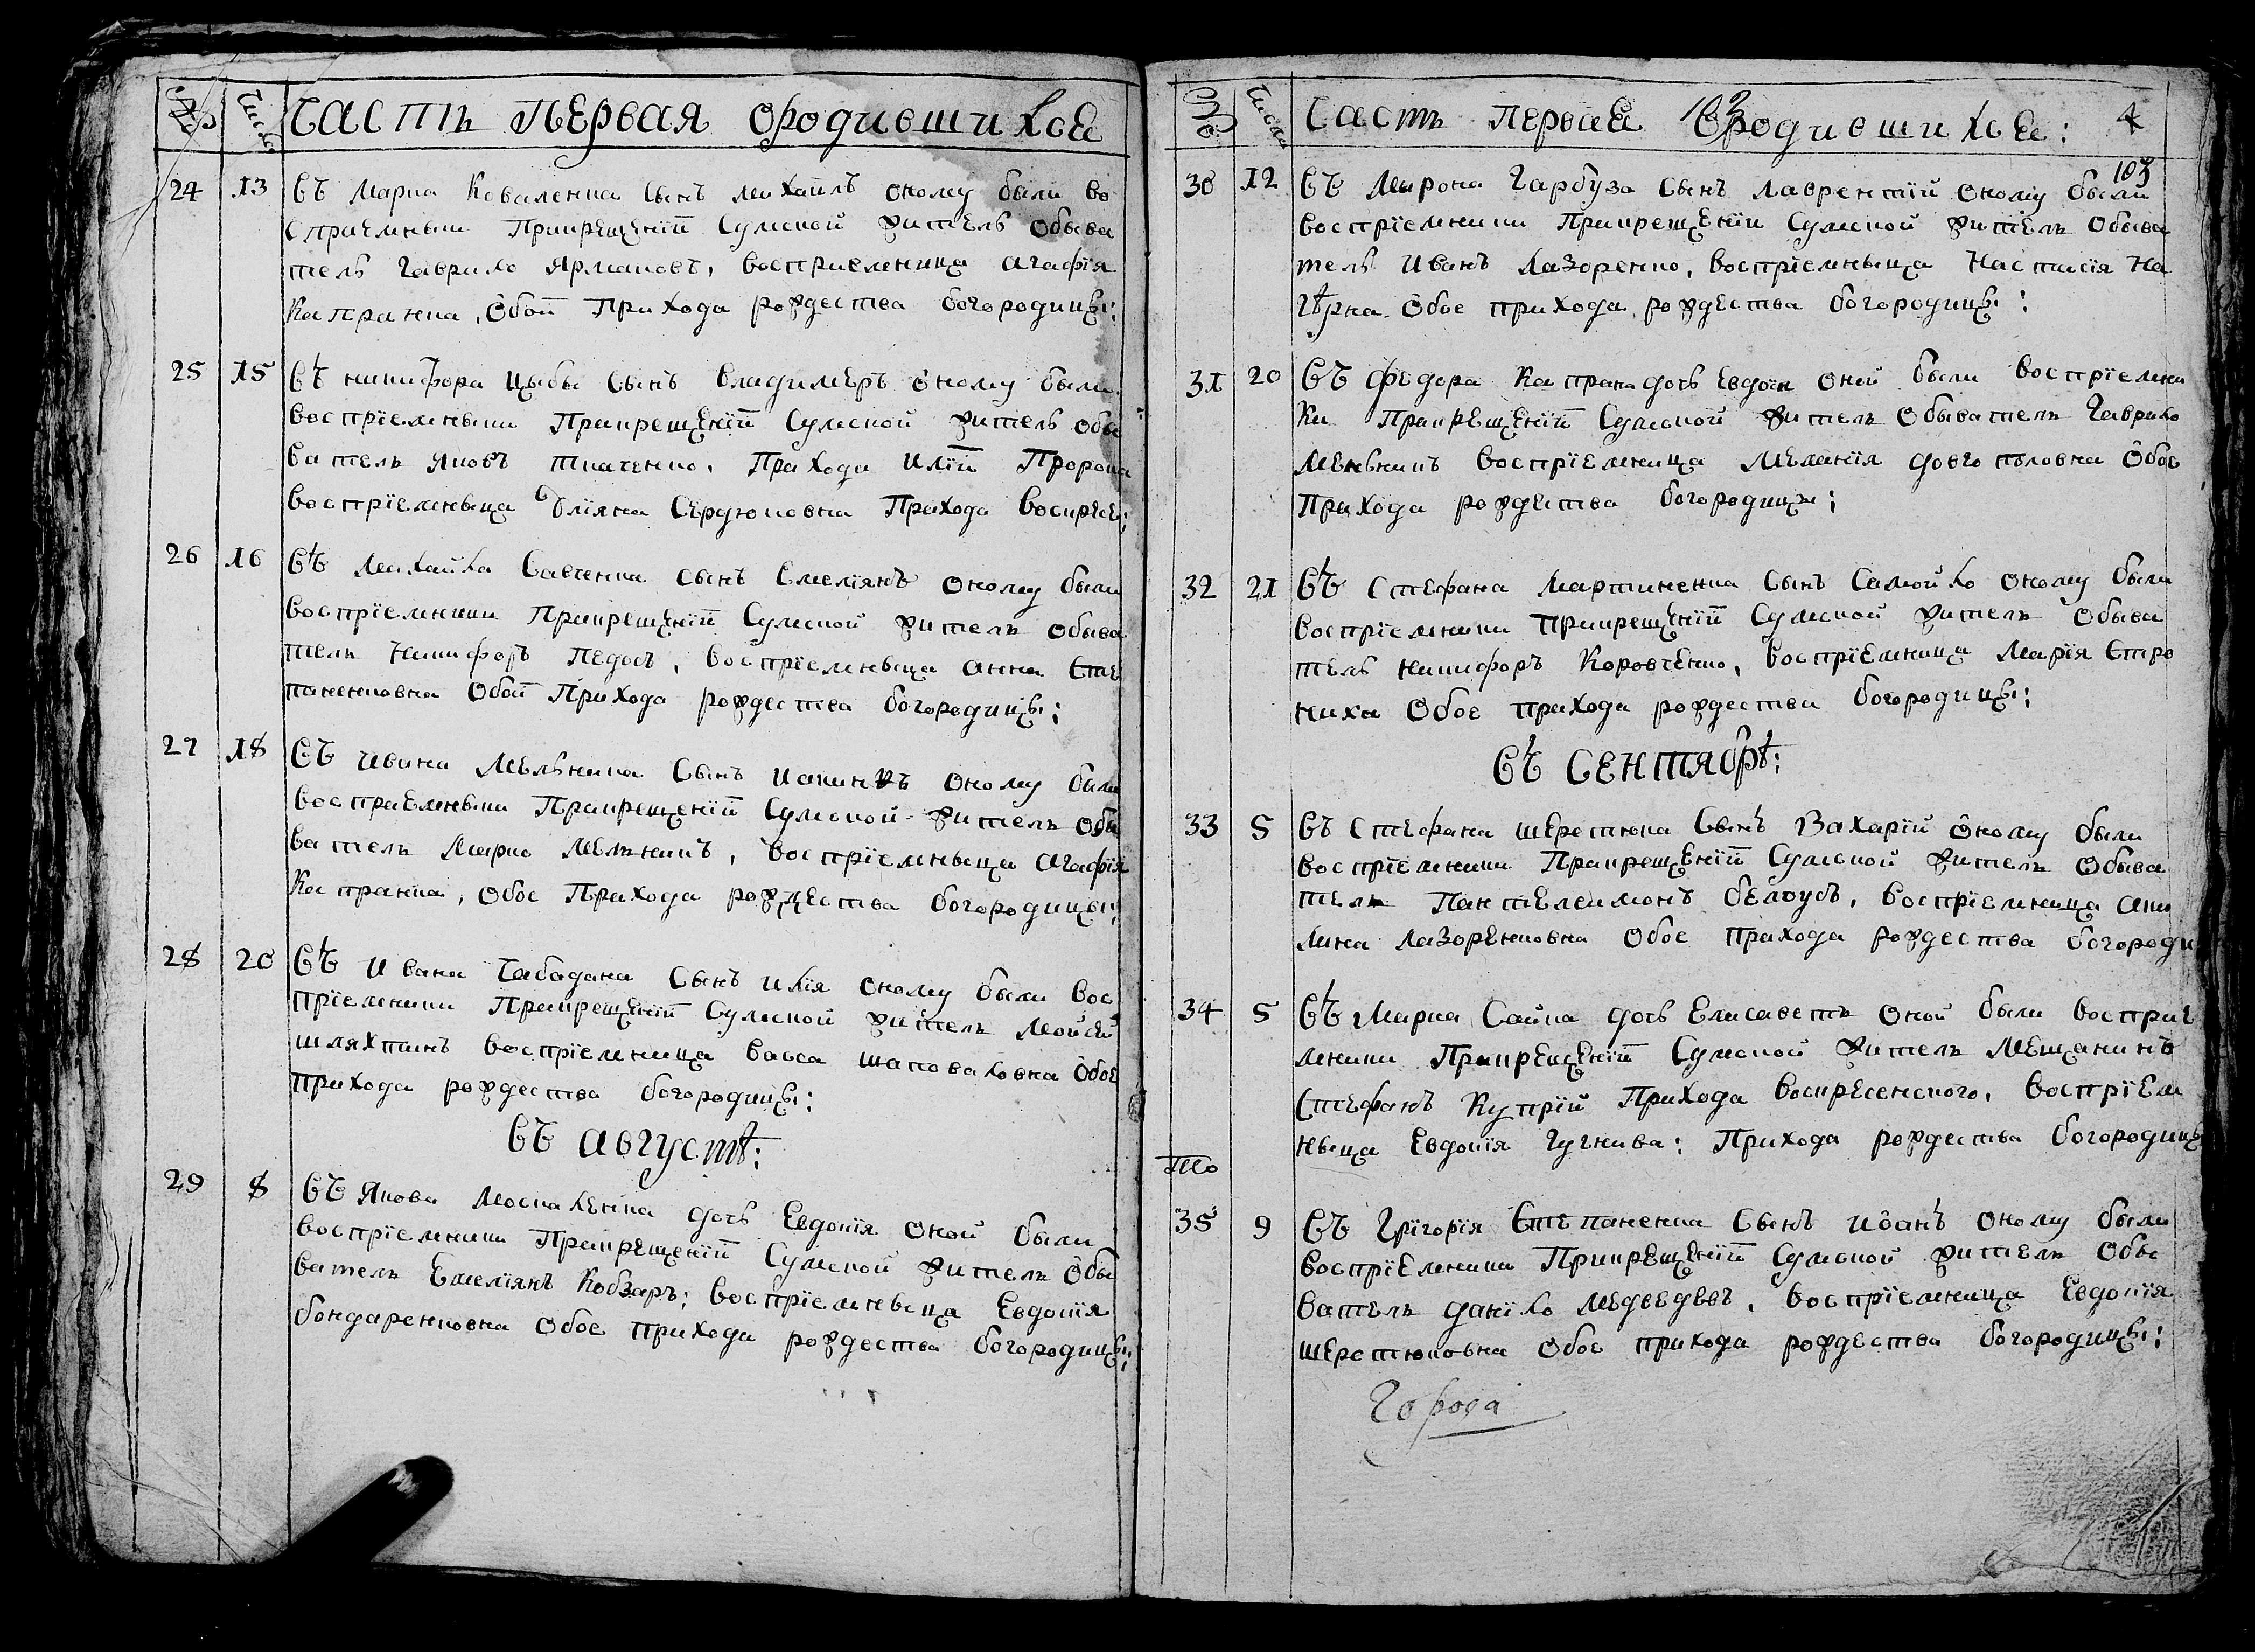 Часть первая ородившихся
24 13 Въ Марка Коваленка Сынъ михаилъ оному были во
сприемники Прикрещенїи Сумской житель обыва
тель Гаврило Ярмаковъ, восприемница агафїя
Капранка, обои Прихода рождества богородицы:
25 15 Въ никифора Цыбы Сынъ владимеръ оному были
воспрїемники Прикрещенїи Сумской житель обы
ватель яковъ ткаченко, Прихода илїи Пророка
воспрїемница Улїяна Сердюковна Прихода воскресе:
26 16 Въ Михайла Савченка сынъ Емелїянъ оному были
воспрїемники Прикрещенїи Сумской житель обыва
тель никифоръ педосъ, воспрїемница анна Сте
паненковна обои Прихода рождества богородицы:
27 18 Въ ивана мельника Сынъ иоакинъ оному были
восприемники Прикрещенїи Сумской житель обы
ватель Марко мельникъ, воспрїемница агафїя
Капранка, обое Прихода рождества богородицы:
28 20 Въ ивана Чабадана Сынъ илїя оному были вос
прїемники Прикрещенїи Сумской житель мойсей
шляхтинъ воспрїемница васса шаповаловна обое
прихода рождества богородицы:
Въ августѣ:
29 8 Въ Якова москаленка дочь Евдокїя оной были
воспрїемники Прикрещенїи Сумской житель обы
ватель Емелїянъ Кобзаръ; воспрїемница Евдокїя
бондаренковна обое прихода рождества богородицы:
Часть первая ородившихся: 4
103
30 12 Въ Мирона Гарбуза Сынъ лаврентїй оному были
воспрїемники Прикрещенїи Сумской житель обыва
тель иванъ лазоренко, воспрїемница настасїя на
гѣрна обое прихода рождества богородицы:
31 20 Въ федора Капрана дочь Евдокїя оной были воспрїемни
ки Прикрещенїи Сумской житель обыватель Гаврило
мельникъ воспрїемница меланїя довгополовна обое
Прихода рождества богородицы:
32 21 Въ Стефана мартиненка Сынъ Самойло оному были
воспрїемники прикрещенїи Сумской житель обыва
тель никифоръ Коровченко, воспрїемница Марїя Стро
ниха обое прихода рождества богородицы:
Въ Сентябрѣ:
33 5 Въ Стефана шерстюка Сынъ Захарїй оному были
воспрїемники Прикрещенїи Сумской житель обыва
тель Пантелеимонъ белоусъ, воспрїемница аки
лина лазоренковна обое прихода рождества богороди
34 5 Въ Марка Сайка дочь Елисаветъ оной были восприе
мники Прикрещенїи Сумской житель мещанинъ
Стефанъ Купрїй Прихода воскресенского, воспрїем
ница Евдокїя Гугнива: Прихода рождества богородицы
35 9 Въ Григорїя Степаненка Сынъ иоанъ оному были
воспрїемники Прикрещенїи Сумской житель обы
ватель данїло медведевъ, воспрїемница Евдокїя
шерстюковна обое прихода рождества богородицы:
Города